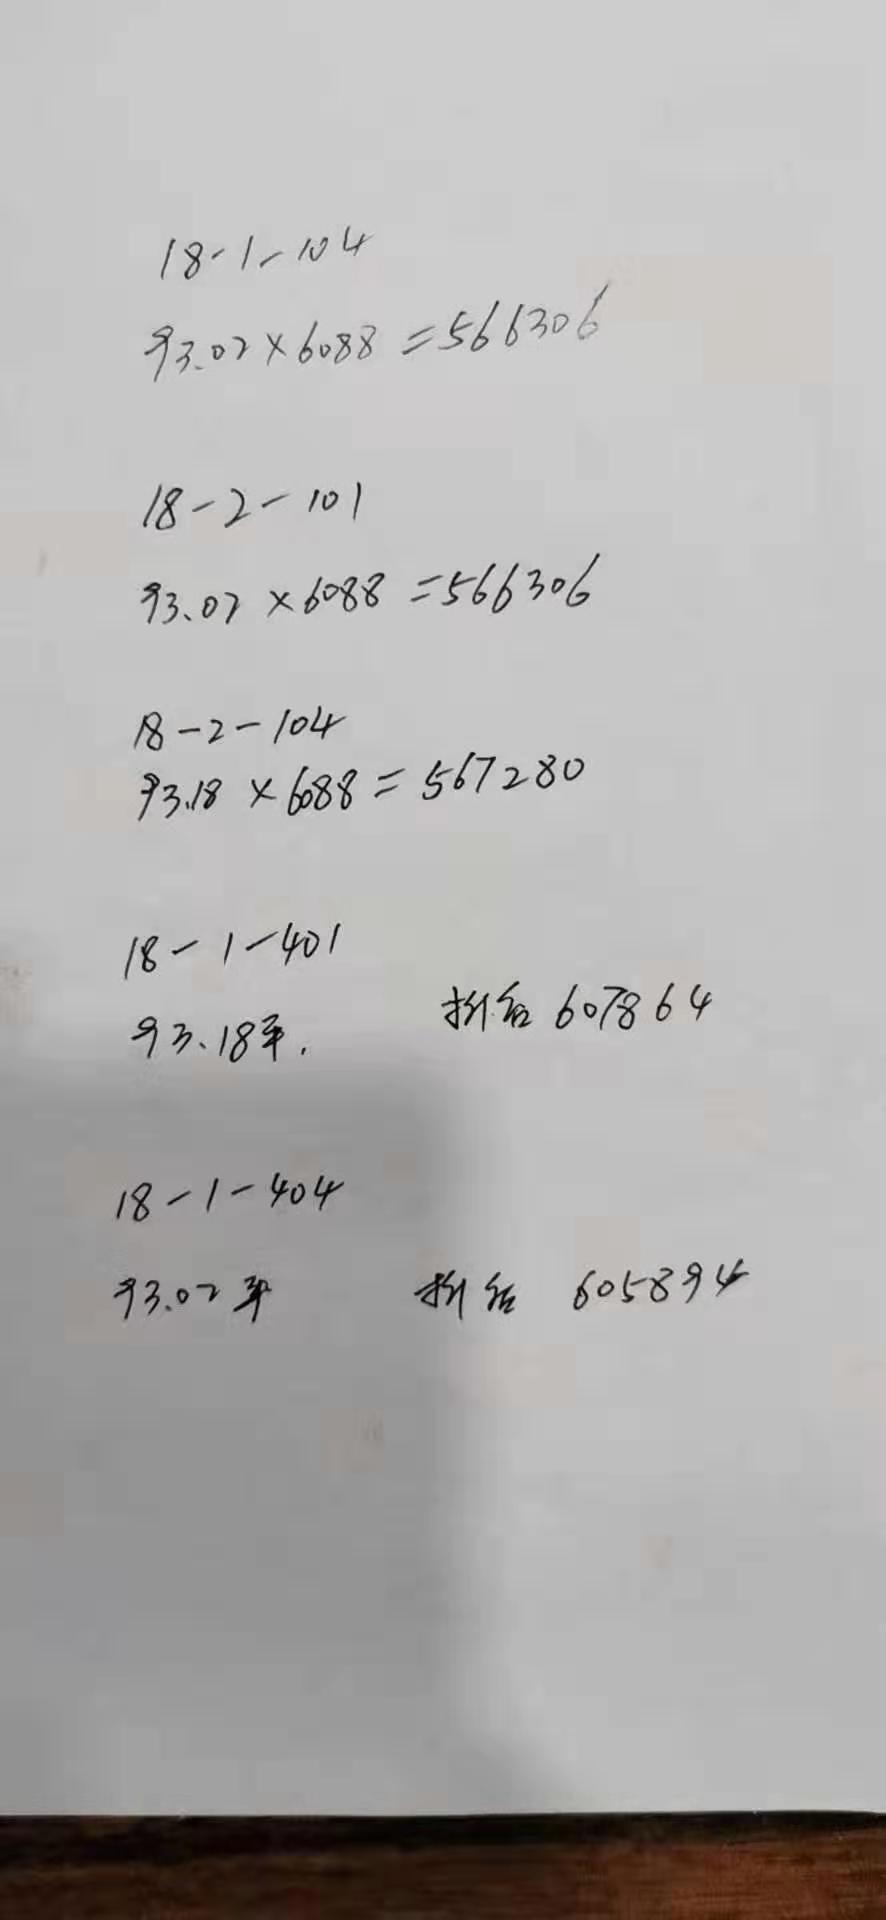 18-1-104
93.02×6088=566306
18-2-101
93.02×6088=566306
18-2-104
93.18×6088=567280
18-1-401
93.18平. 折后 607864
18-1-404
93.02平 折后 605894